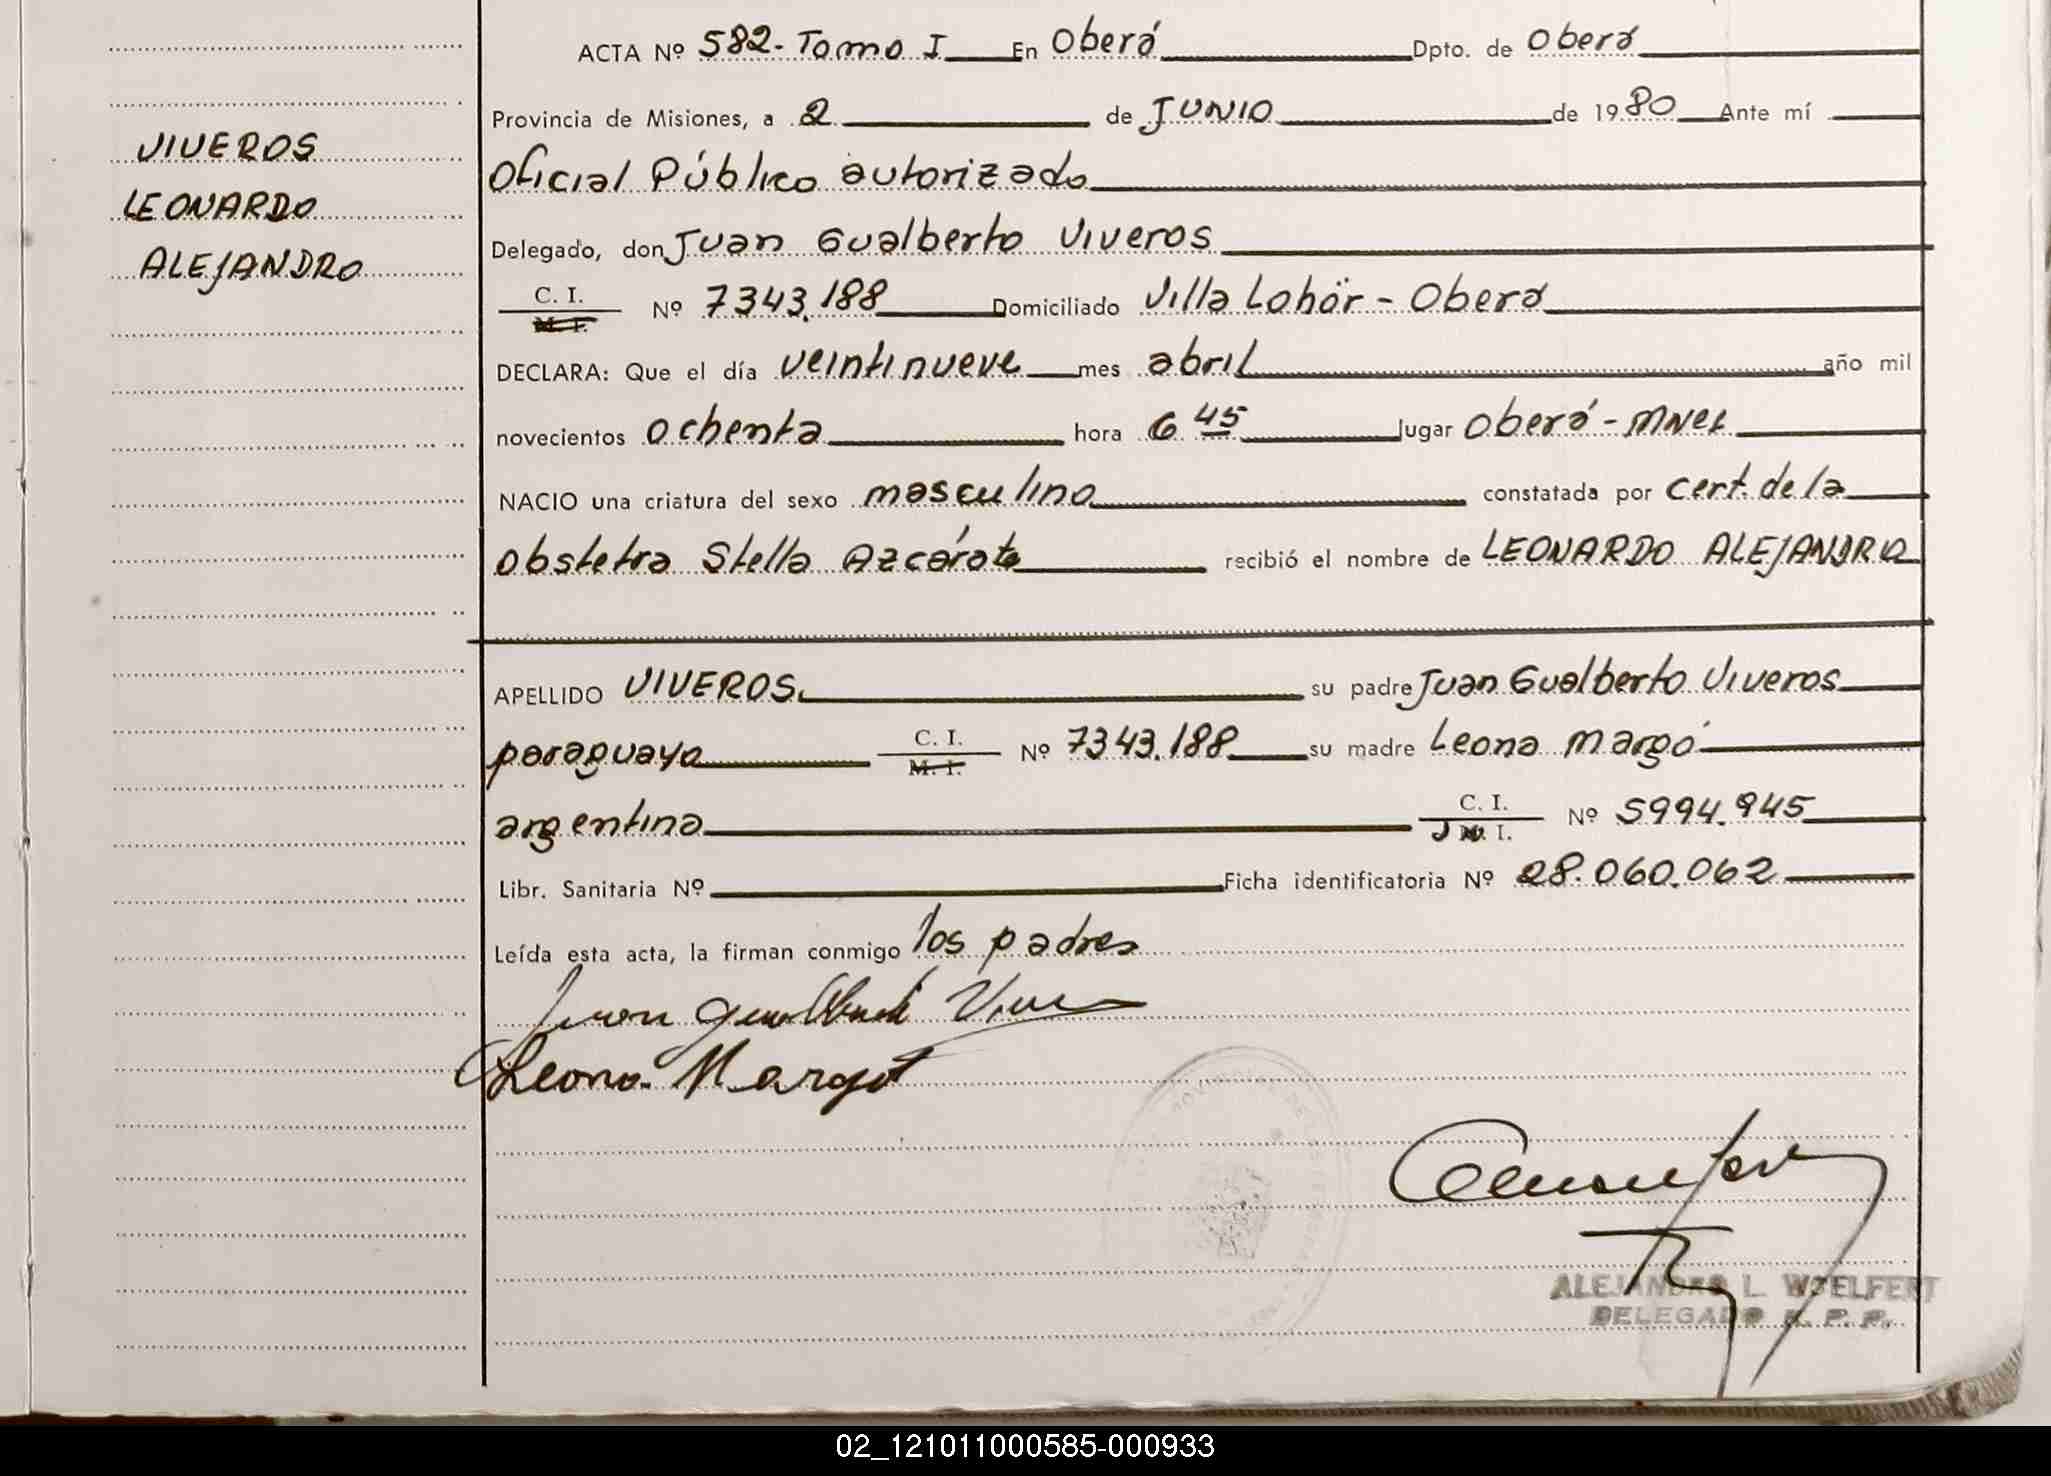 VIVEROS
LEONARDO
ALEJANDRO
ACTA Nº 582- Tomo I En Oberá Dpto. de Oberá
Provincia de Misiones, a 2 de JUNIO de 1980 Ante mí
Oficial Público autorizado
Delegado, don Juan Gualberto Viveros
C. I.
M. I.
Nº 7343.188 Domiciliado Villa Lohör - Oberá
DECLARA: Que el día veintinueve mes abril año mil
novecientos ochenta hora 6 45 lugar Oberá - Mnes
NACIO una criatura del sexo masculino constatada por cert. de la
obstetra Stella Azcárate recibió el nombre de LEONARDO ALEJANDRO
APELLIDO VIVEROS su padre Juan Gualberto Viveros
paraguayo C. I. Nº 7343.188 su madre Leona Margó
M. I.
argentina C. I. Nº 5994.945
M. I.
Libr. Sanitaria Nº Ficha identificatoria Nº 28.060.062
Leída esta acta, la firman conmigo los padres
Juan Gualberto
Leona Margot
ALEJANDRO L. WOELFERT
DELEGADO R. P. P.
02_121011000585-000933